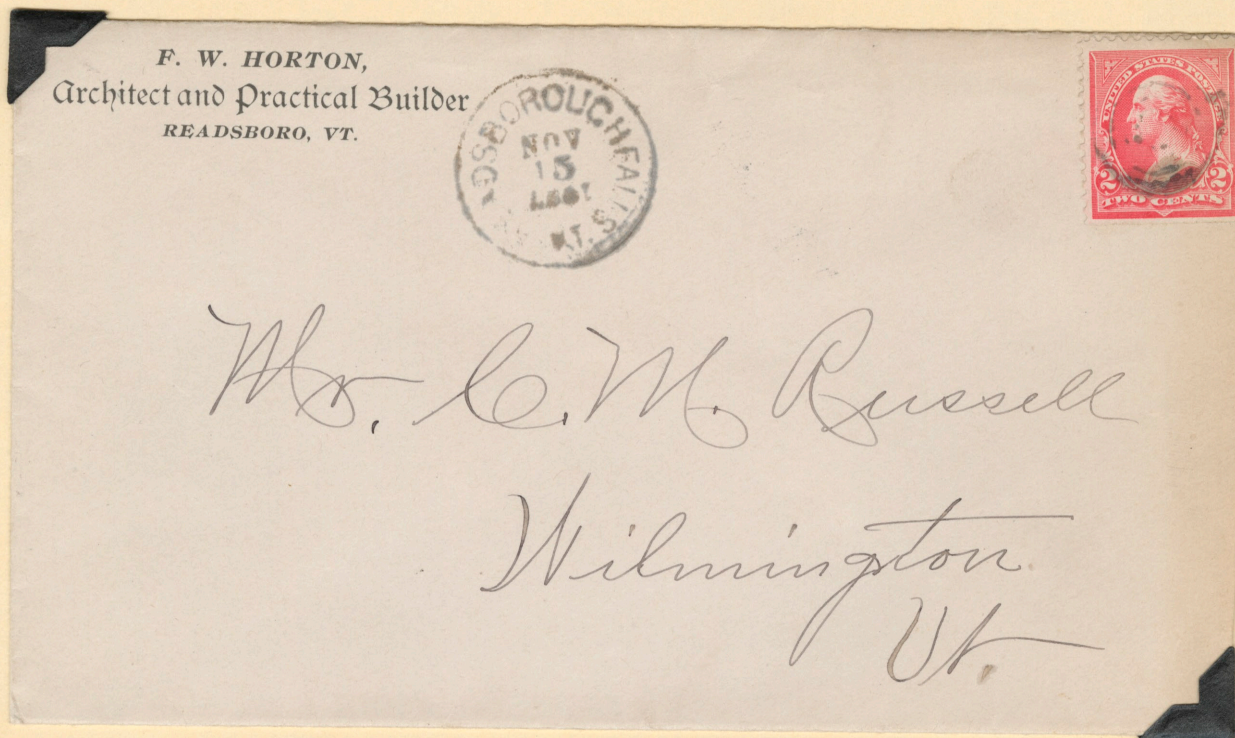 F. W. HORTON,
Architect and Practical Builder
READSBORO, VT.
DSBOROUGH FALLS
NOV
15
VT.
UNITED STATES POSTAGE
2 2
TWO CENTS
Mr. C. M. Russell
Wilmington
Vt.